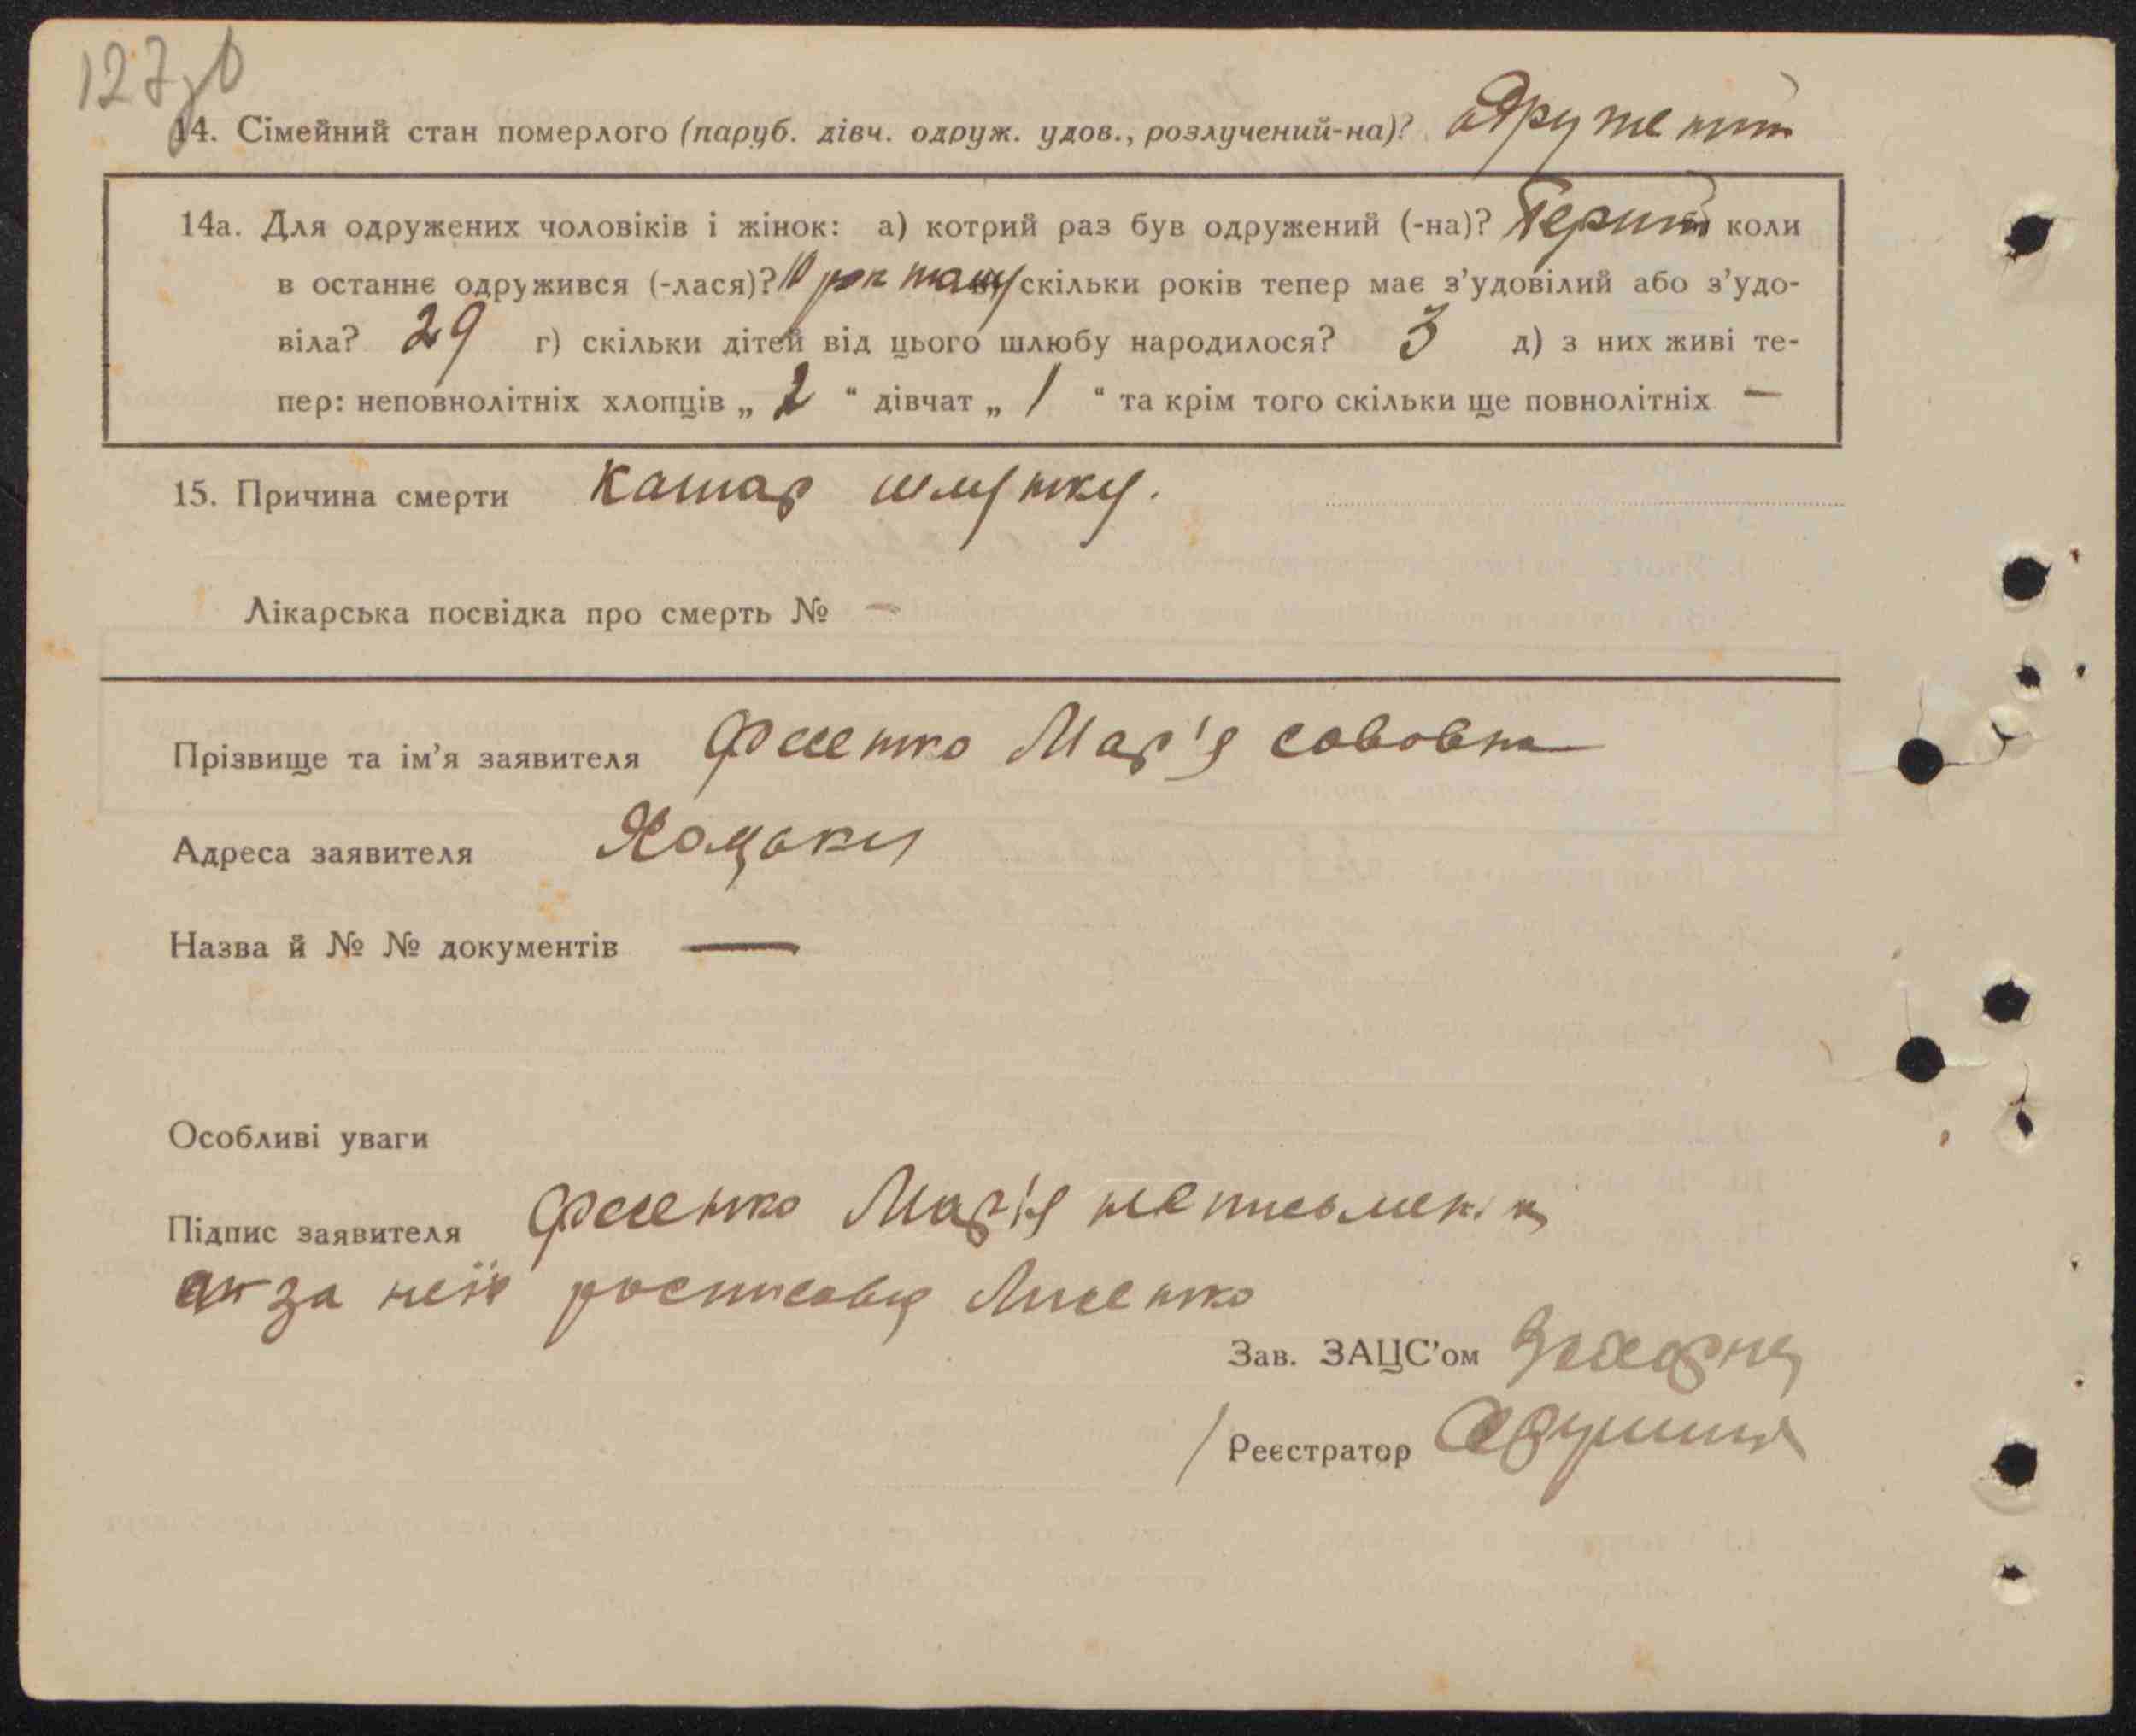 127зв
14. Сімейний стан померлого (паруб. дівч. одруж. удов., розлучений-на)? одружений
14а. Для одружених чоловіків і жінок: а) котрий раз був одружений (-на)? Перший коли
в останнє одружився (-лася)? 10 рок тому скільки років тепер має з’удовілий або з’удо-
віла? 29 г) скільки дітей від цього шлюбу народилося? 3 д) з них живі те-
пер: неповнолітніх хлопців „ 2 “ дівчат „ 1 “ та крім того скільки ще повнолітніх —
15. Причина смерти катар шлунку.
Лікарська посвідка про смерть № —
Прізвище та ім’я заявителя Фесенко Мар'я сововна
Адреса заявителя Хоцьки
Назва й № № документів —
Особливі уваги
Підпис заявителя Фесенко Мар'я неписьмен
за неї росписавсь Лисенко
Зав. ЗАЦС’ом
Реєстратор